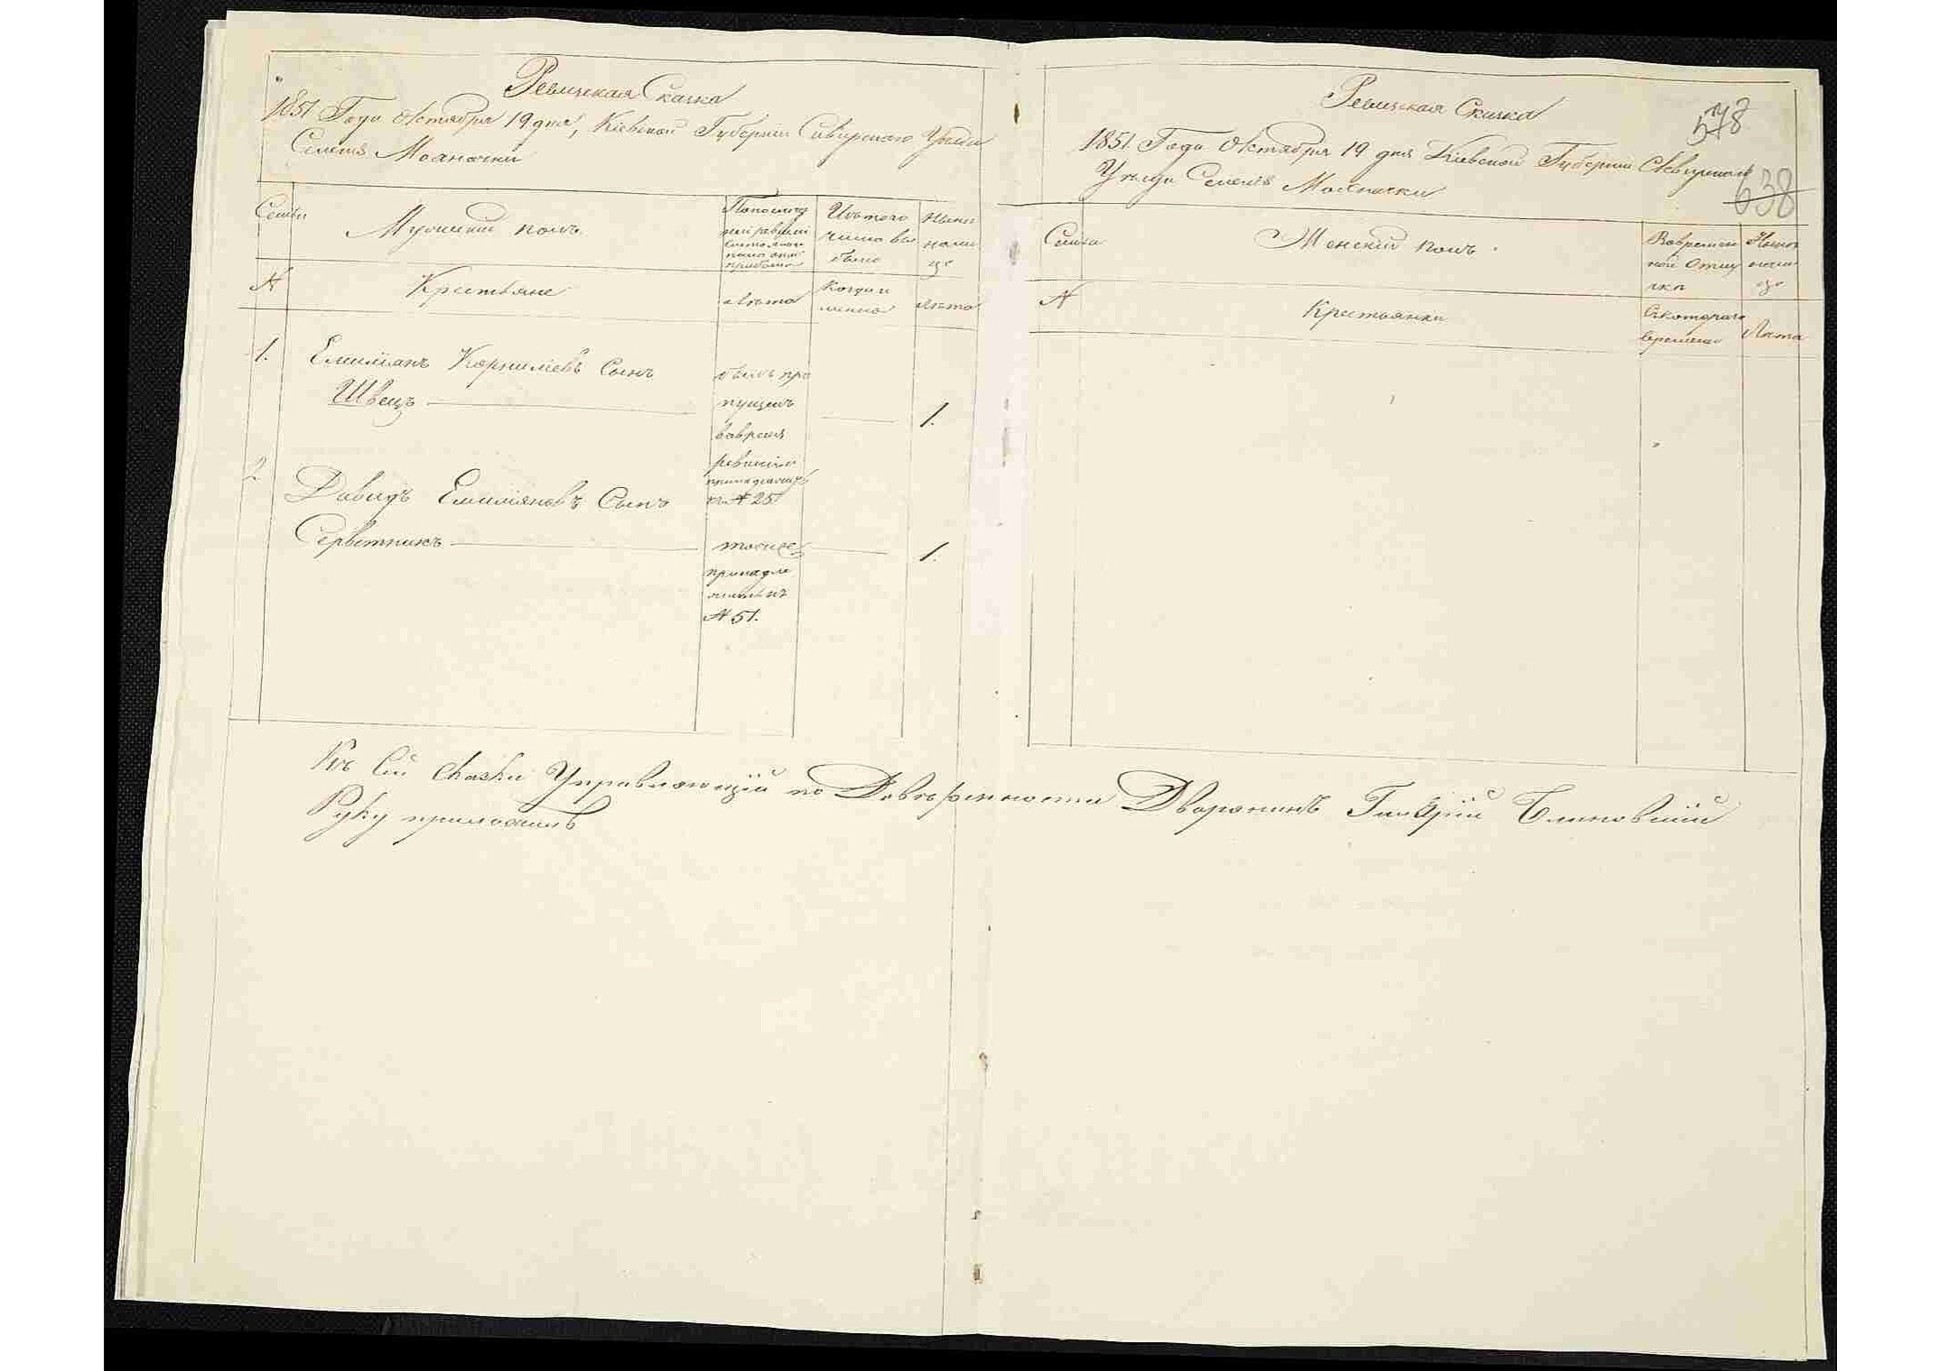 Ревизская Сказка
1851 Года Октября 19 дня, Кіевской Губерніи Сквирскаго Уезда
Селенія Молчановки
Семьи
Мужеский полъ
По последней ревизіи состояло и после оной прибыло
Изъ того числа выбыло
Ныне на лицо
№
Крестьяне
лета
Когда именно
лета
1.
Емиліанъ Корниліевъ Сынъ
Швецъ
былъ пропущенъ вовремя ревизіи принадлежитъ къ № 25
1.
2.
Давидъ Емиліяновъ Сынъ
Серветникъ
тоже принадлежитъ къ № 51.
1.
Ревизская Сказка
578
1851. Года Октября 19 дня Кіевской Губерніи Сквирскаго
638
Уезда Селенія
Семьи
Женский полъ
Во временной отлучке
Ныне на лицо
№
Крестьянки
Съ котораго времени
Лета
Къ Сей Сказки Управляющій по Доверенности Дворянинъ
Руку приложилъ